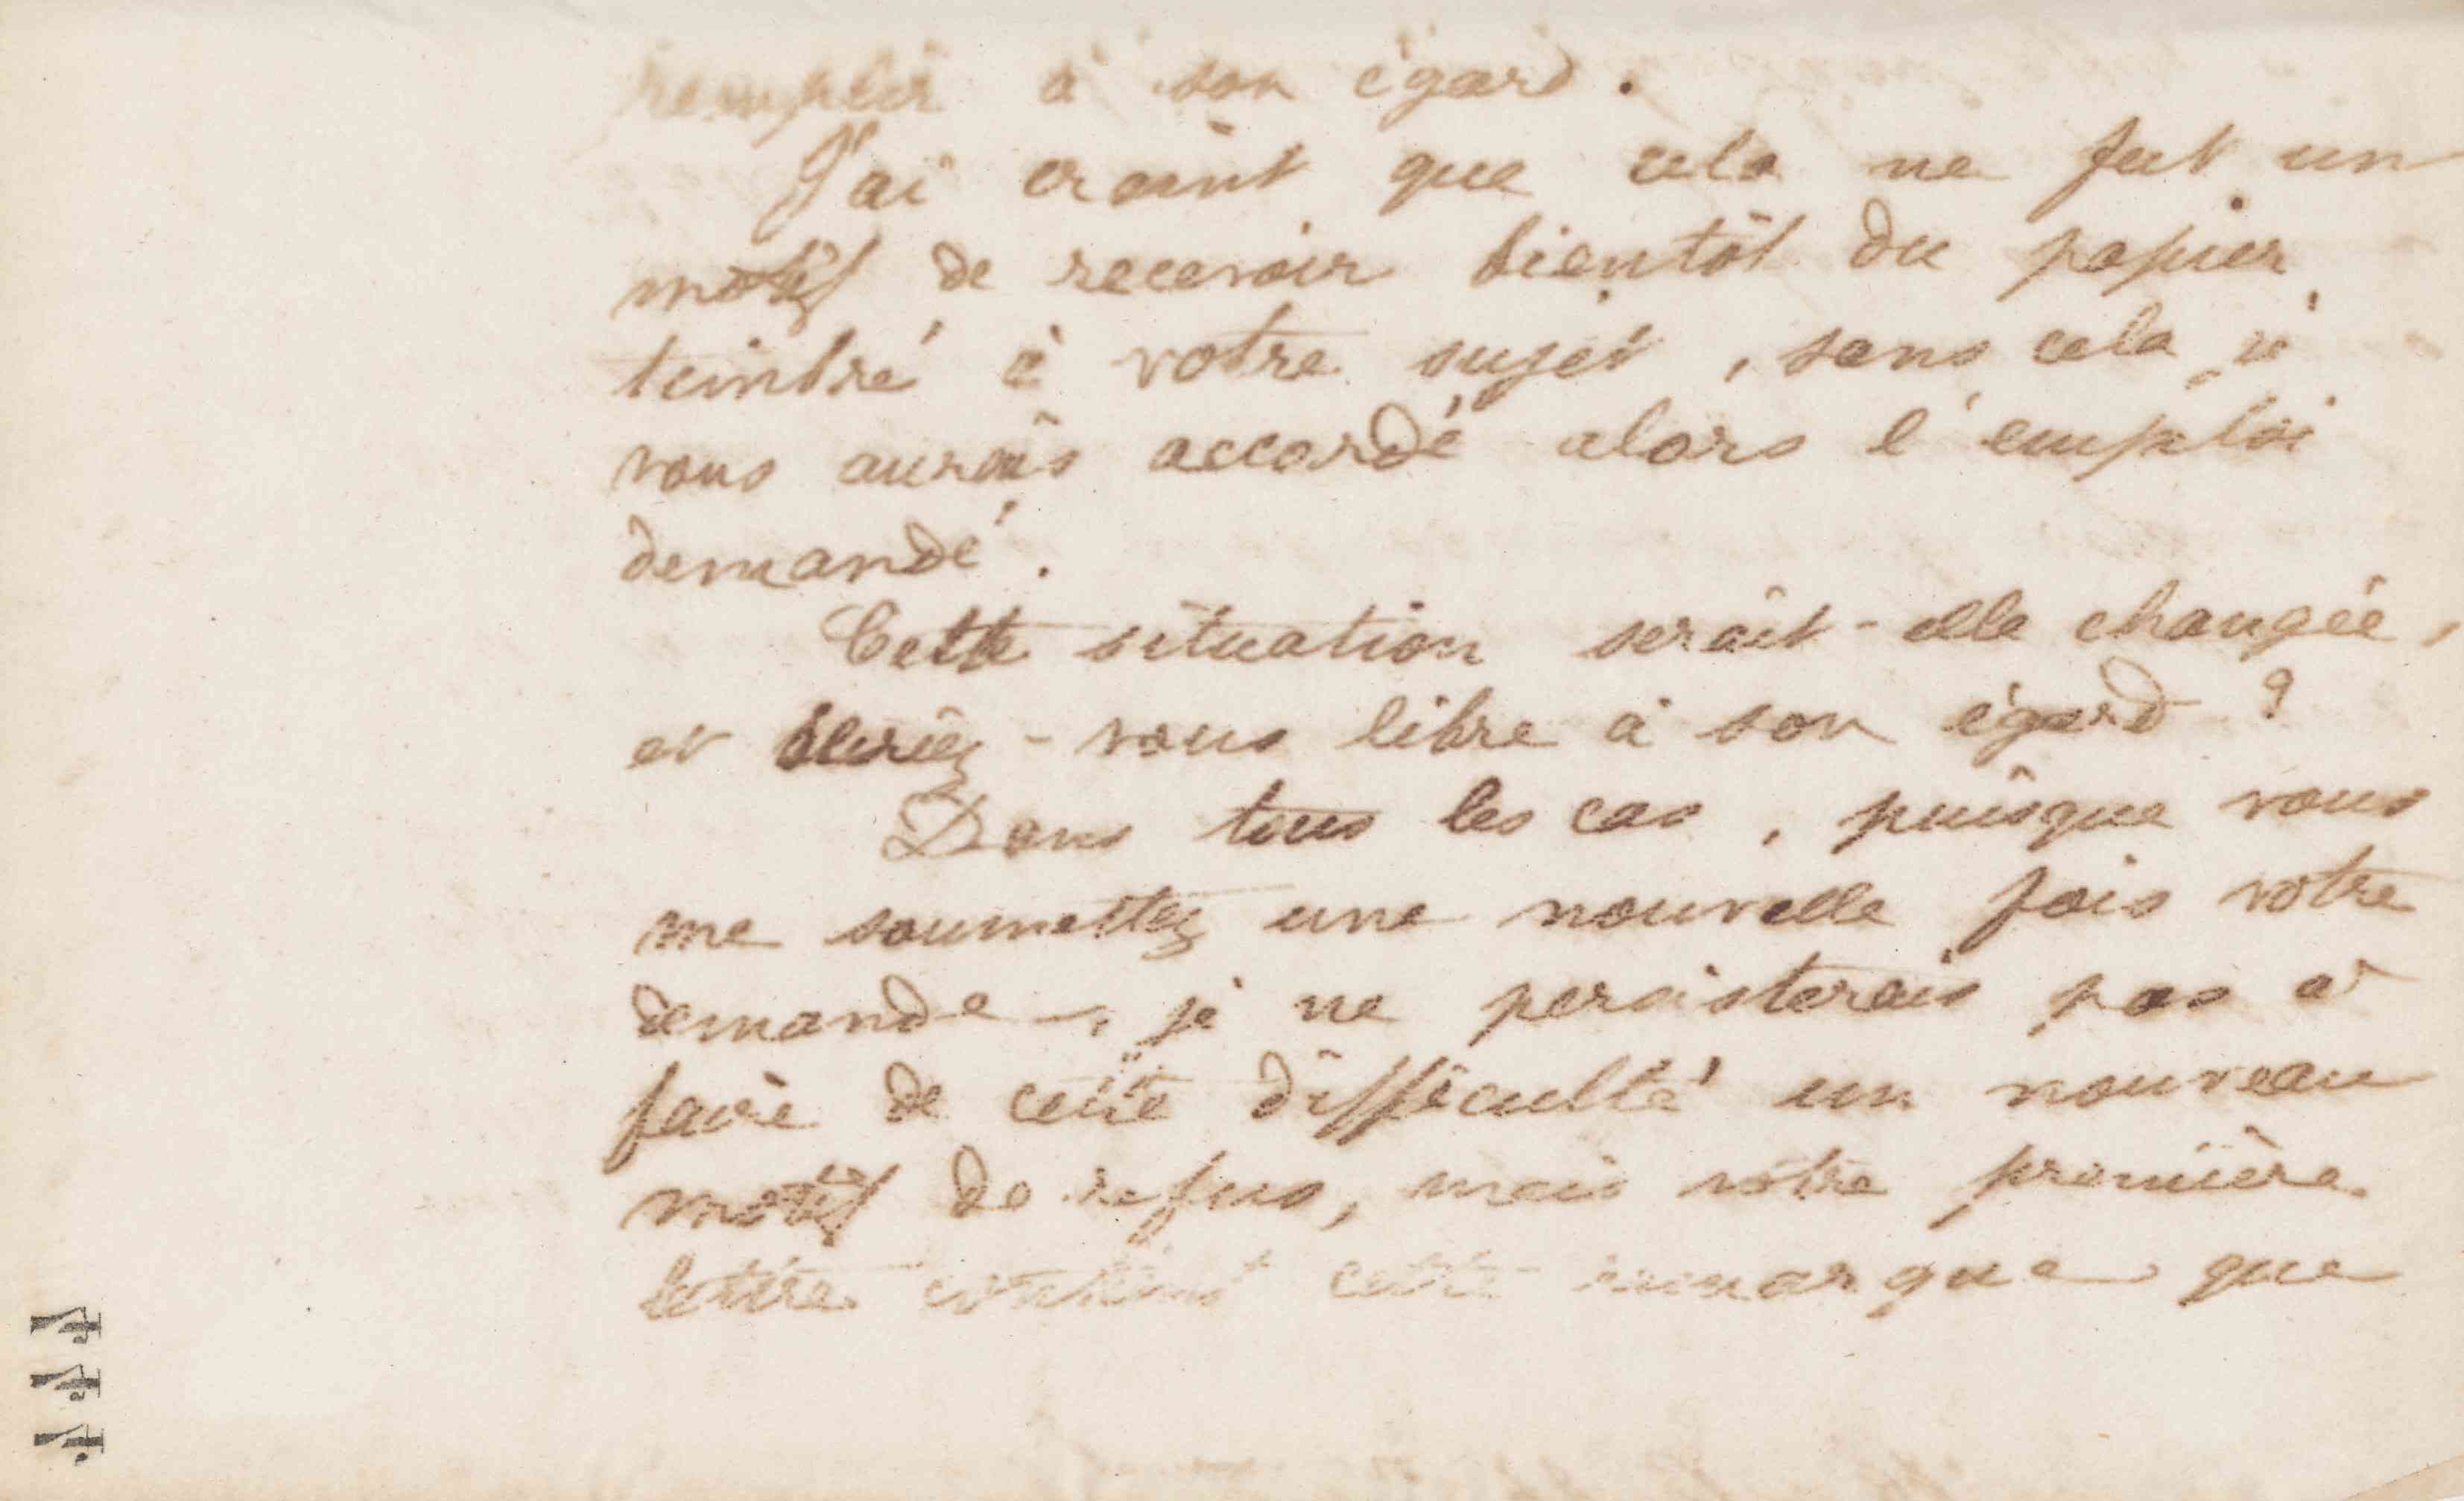 remplir à son égard.
J'ai craint que cela ne fut un
motif de recevoir bientôt du papier
timbré à votre sujet, sans cela je
vous aurais accordé alors l'emploi
demandé.
Cette situation serait-elle changée,
et seriez-vous libre à son égard ?
Dans tous les cas, puisque vous
me soumettez une nouvelle fois votre
demande, je ne persisterais pas à
faire de cette difficulté un nouveau
motif de refus, mais votre première
lettre contient cette remarque que